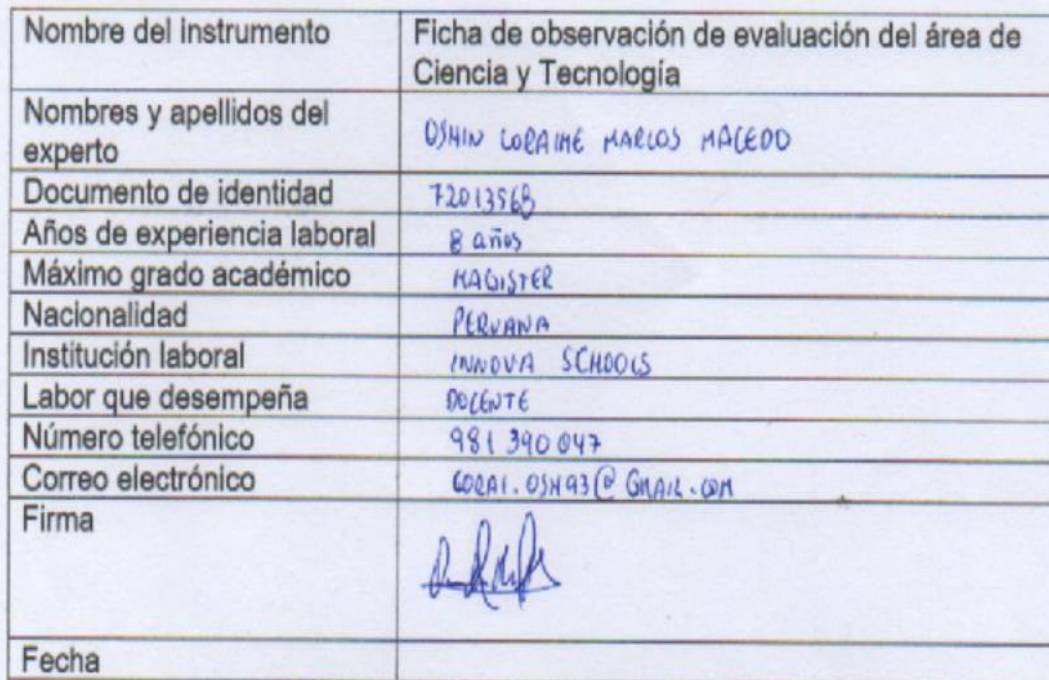 Nombre del instrumento
Ficha de observación de evaluación del área de
Ciencia y Tecnología
Nombres y apellidos del
experto
OSHIN LORAINE MARCOS MACEDO
Documento de identidad
72013568
Años de experiencia laboral
8 años
Máximo grado académico
MAGISTER
Nacionalidad
PERUANA
Institución laboral
INNOVA SCHOOLS
Labor que desempeña
DOCENTE
Número telefónico
981 390 047
Correo electrónico
LORAI.OSH93@GMAIL.COM
Firma
Fecha